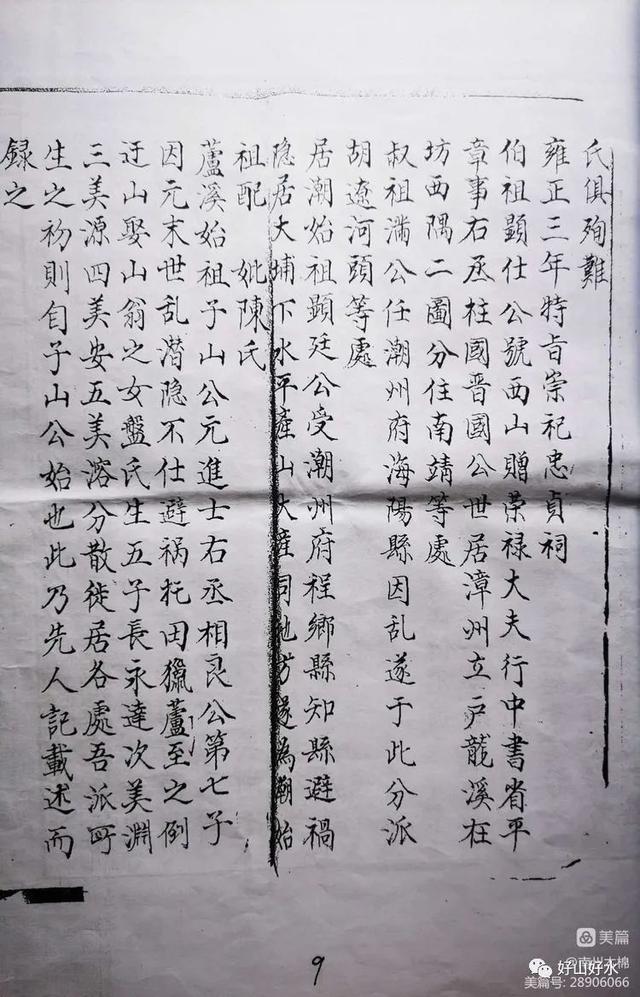 氏俱殉難
雍正三年特旨崇祀忠貞祠
伯祖顕仕公號西山贈荣禄大夫行中書省平
章事右丞柱國晋國公世居漳州立户龍溪在
坊西隅二圖分住南靖等處
叔祖满公任潮州府海陽縣因乱遂于此分派
胡遼河頭等處
居潮始祖顕廷公受潮州府程鄉縣知縣避禍
隐居大埔下水平產山大產同地方遂為潮始
祖配　妣陳氏
蘆溪始祖子山公元進士右丞相良公第七子
因元末世乱潛隐不仕避祸托田獵蘆至之例
迂山娶山翁之女盤氏生五子長永達次美淵
三美源四美安五美溶分散徙居各處吾派所
生之初則自子山公始也此乃先人記載述而
録之
9
美篇
@南州木棉
好山好水
美篇号: 28906066